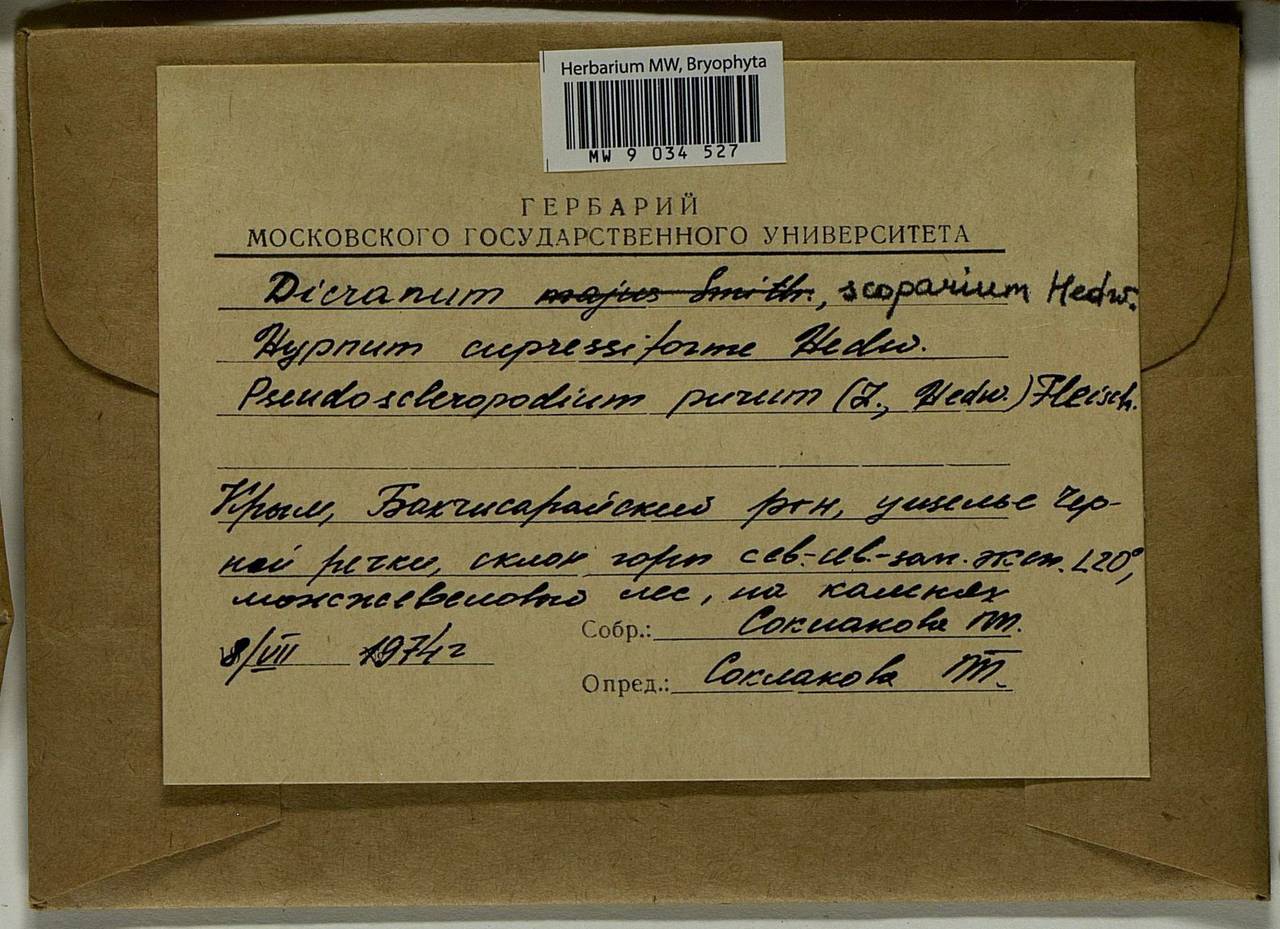 Herbarium MW, Bryophyta
MW 9 034 527
ГЕРБАРИЙ
МОСКОВСКОГО ГОСУДАРСТВЕННОГО УНИВЕРСИТЕТА
Dicranum majus Smith., scoparium Hedw.
Hypnum cupressiforme Hedw.
Pseudoscleropodium purum (L., Hedw.) Fleisch.
Крым, Бахчисарайский р-н, ущелье Чер-
ной речки, склон горы сев.-сев.-зап. эксп. ∠20°,
можжевеловый лес, на камнях
Собр.: Соклакова Т.
8/VII 1974 г
Опред.: Соклакова Т.